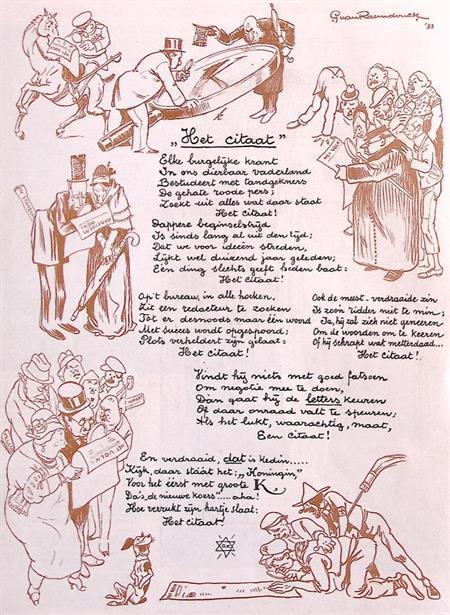 GvanRaemdonck
'33
„Het citaat"
Elke burgelijke krant
In ons dierbaar vaderland
Bestudeert met tandgekners
De gehate roode pers;
Zoekt uit alles wat daar staat
Het citaat!
Dappere beginselstrijd
Is sinds lang al uit den tijd;
Dat we voor ideeën streden,
Lijkt wel duizend jaar geleden;
Eén ding slechts geeft heden baat:
Het citaat!
Op't bureau, in alle hoeken.
Zit een redacteur te zoeken
Tot er desnoods maar één woord
Met succes wordt opgespoord;
Plots verheldert zijn gelaat:
Het citaat!
Ook de meest-verdraaide zin
Is zoo'n ridder niet te min;
Ja, hij zal zich niet geneeren
Om de woorden om te keeren
Of hij schrapt wat metterdaad...
Het citaat!
Vindt hij niets met goed fatsoen
Om negotie mee te doen,
Dan gaat hij de letters keuren
Of daar onraad valt te speuren;
Als het lukt, waarachtig, maat,
Een citaat!
En verdraaid, dat is kedin.....
Kijk, daar stáát het: „Koningin,"
Voor het éérst met groote K
Da's „de nieuwe koers"..... aha!
Hoe verrukt zijn hartje slaat:
Het citaat!
HET VOLK